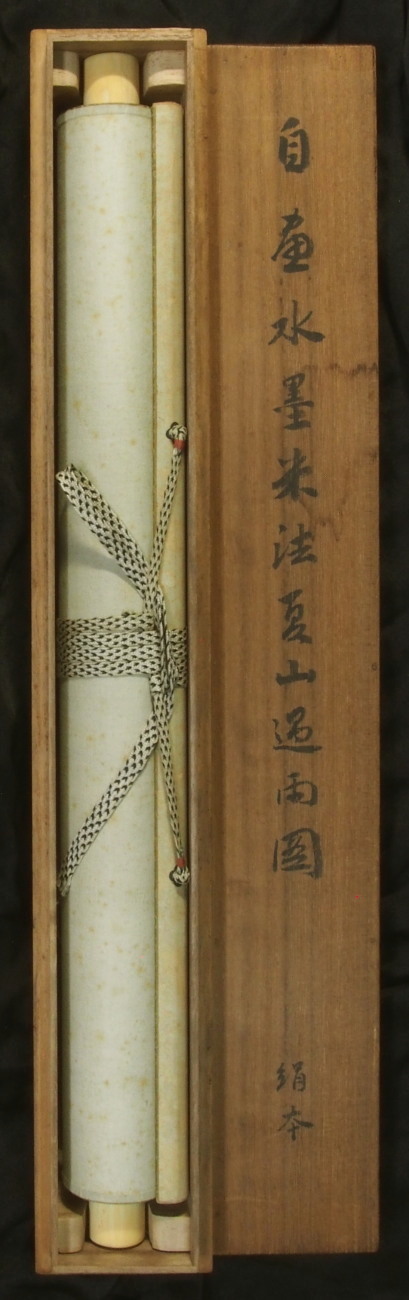 自畫水墨米法夏山過雨圖
絹本